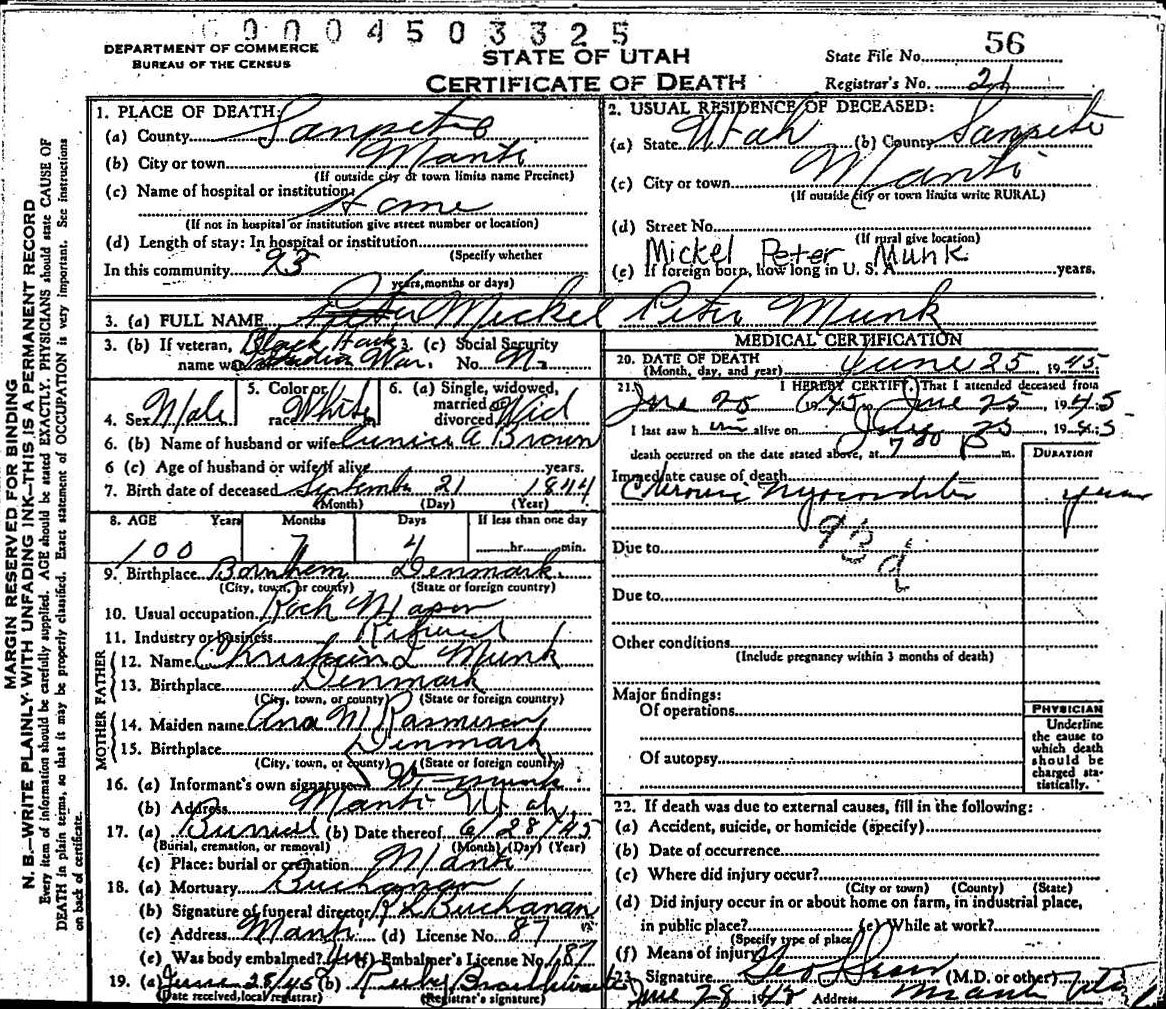 0004503325
DEPARTMENT OF COMMERCE
BUREAU OF THE CENSUS
STATE OF UTAH
CERTIFICATE OF DEATH
State File No. 56
Registrar's No. 26
MARGIN RESERVED FOR BINDING
N. B.—WRITE PLAINLY WITH UNFADING INK—THIS IS A PERMANENT RECORD
Every item of information should be carefully supplied. AGE should be stated EXACTLY. PHYSICIANS should state CAUSE OF
DEATH in plain terms, so that it may be properly classified. Exact statement of OCCUPATION is very important. See instructions
on back of certificate.
1. PLACE OF DEATH:
(a) County Sanpete
(b) City or town Manti
(If outside city or town limits name Precinct)
(c) Name of hospital or institution: Home
(If not in hospital or institution give street number or location)
(d) Length of stay: In hospital or institution
(Specify whether
In this community 93
years, months or days)
2. USUAL RESIDENCE OF DECEASED:
(a) State Utah (b) County Sanpete
(c) City or town Manti
(If outside city or town limits write RURAL)
(d) Street No.
(If rural give location)
Mickel Peter Munk
(e) If foreign born, how long in U. S. A. years.
3. (a) FULL NAME Mickel Peter Munk
3. (b) If veteran, name war Black Hawk Indian War. 3. (c) Social Security No. No
4. Sex Male 5. Color or race White 6. (a) Single, widowed, married or divorced Wid
6. (b) Name of husband or wife Eunice A Brown
6 (c) Age of husband or wife if alive years.
7. Birth date of deceased September 21 1844
(Month) (Day) (Year)
8. AGE Years Months Days If less than one day
100 7 4 hr. min.
9. Birthplace Denmark.
(City, town, or county) (State or foreign country)
10. Usual occupation Rock Mason
11. Industry or business Retired
FATHER
12. Name Munk
13. Birthplace Denmark
(City, town, or county) (State or foreign country)
MOTHER
14. Maiden name Ana M Rasmusen
15. Birthplace Denmark
(City, town, or county) (State or foreign country)
16. (a) Informant's own signature Munk
(b) Address Manti Utah
17. (a) Burial (b) Date thereof 6/28/45
(Burial, cremation, or removal) (Month) (Day) (Year)
(c) Place: burial or cremation Manti
18. (a) Mortuary Buchanan
(b) Signature of funeral director R L Buchanan
(c) Address Manti (d) License No. 87
(e) Was body embalmed? Yes (f) Embalmer's License No. 187
19. (a) June 28/45 (b) Ruby
(Date received, local registrar) (Registrar's signature)
MEDICAL CERTIFICATION
20. DATE OF DEATH June 25, 1945
(Month, day, and year)
21. I HEREBY CERTIFY, That I attended deceased from
June 25 1945 June 25, 1945
I last saw h im alive on June 25, 1945
death occurred on the date stated above, at 7 30 P m.
DURATION
Immediate cause of death
Chronic Myocarditis years
93d
Due to
Due to
Other conditions
(Include pregnancy within 3 months of death)
Major findings:
Of operations
Of autopsy
PHYSICIAN
Underline
the cause to
which death
should be
charged sta-
tistically.
22. If death was due to external causes, fill in the following:
(a) Accident, suicide, or homicide (specify)
(b) Date of occurrence
(c) Where did injury occur?
(City or town) (County) (State)
(d) Did injury occur in or about home on farm, in industrial place,
in public place? (e) While at work?
(Specify type of place)
(f) Means of injury
23. Signature (M.D. or other)
June 28 Address Manti Utah